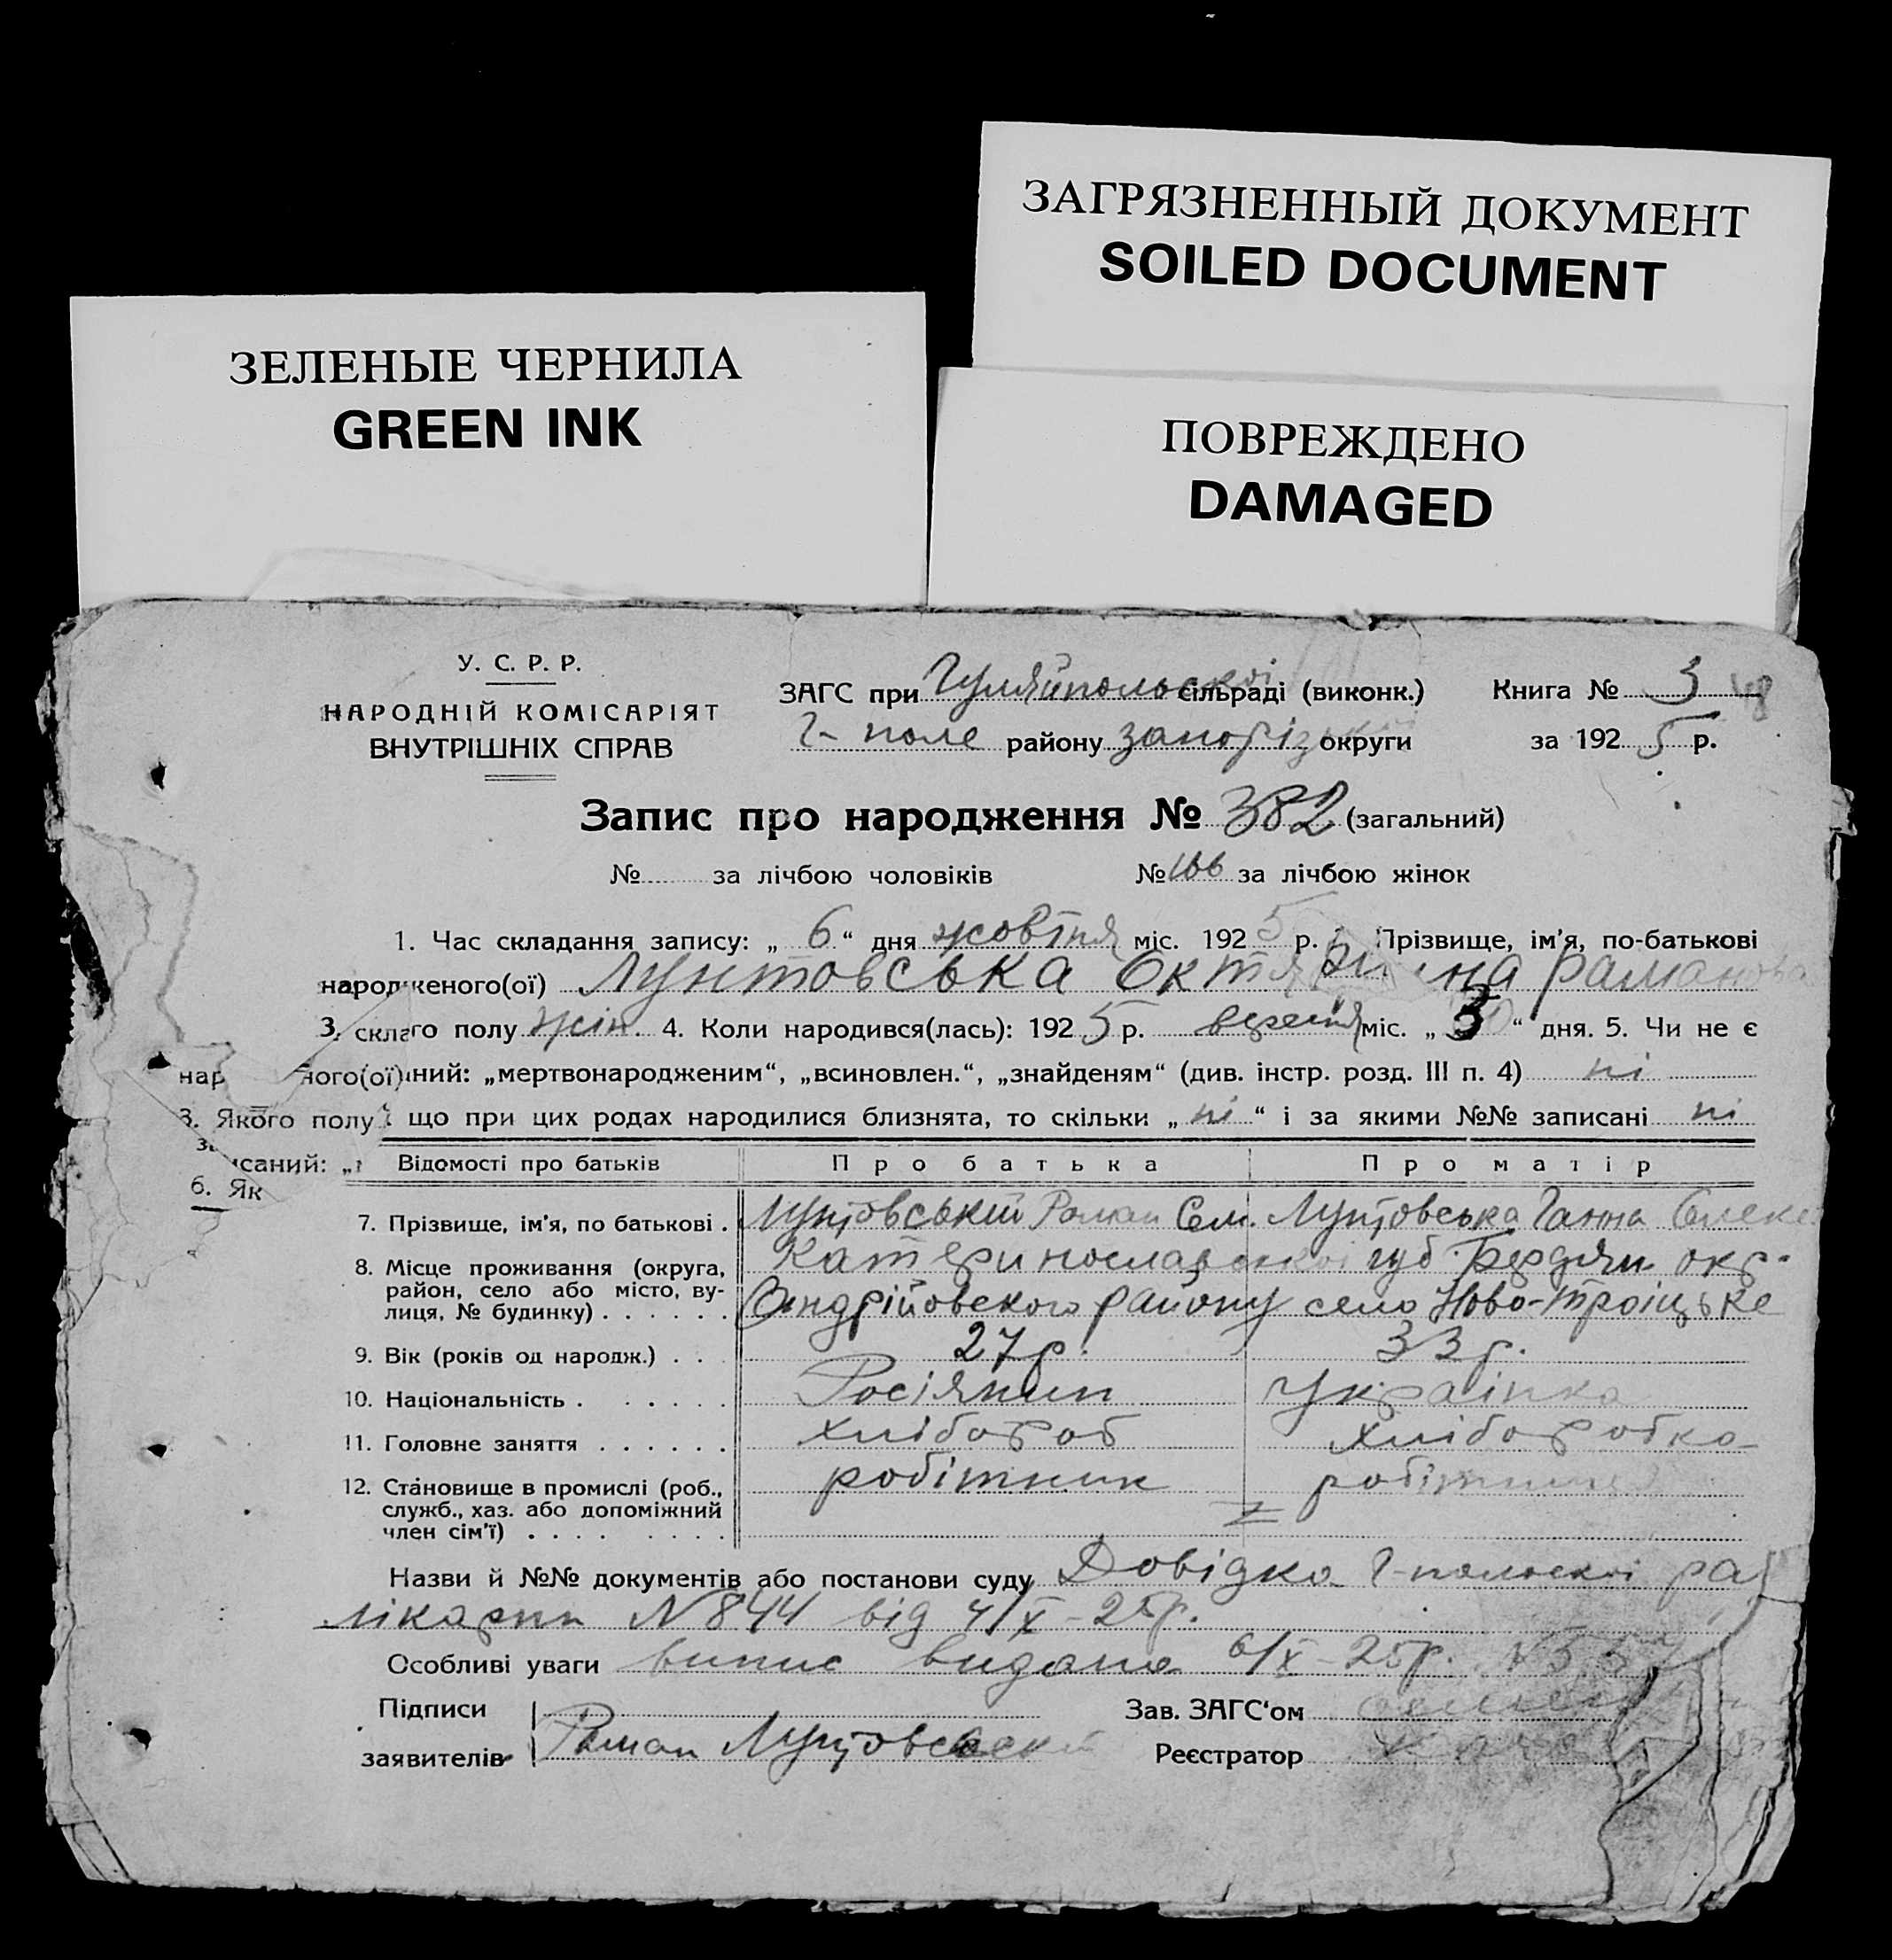 ЗАГРЯЗНЕННЫЙ ДОКУМЕНТ
SOILED DOCUMENT
ЗЕЛЕНЫЕ ЧЕРНИЛА
GREEN INK
ПОВРЕЖДЕНО
DAMAGED
У. С. Р. Р.
НАРОДНІЙ КОМІСАРІЯТ
ВНУТРІШНІХ СПРАВ
ЗАГС при Гуляйпольскої сільраді (виконк.) Книга № 3
Г- поле району запоріз округи за 192 5 р.
Запис про народження № 382 (загальний)
№ за лічбою чоловіків № 166 за лічбою жінок
1. Час складання запису: „ 6 “ дня жовтня міс. 192 5 р. Прізвище, ім'я, по-батькові
народженого(ої) Лунтовська Рама
3. го полу жін. 4. Коли народився(лась): 192 5 р. вересня міс. „ 30 “ дня. 5. Чи не є
нар ного(ої) ний: „мертвонародженим“, „всиновлен.“, „знайденям“ (див. інстр. розд. III п. 4) ні
3. Якого полу що при цих родах народилися близнята, то скільки „ ні “ і за якими №№ записані ні
саний: „ Відомості про батьків Про батька Про матір
6. Як
7. Прізвище, ім'я, по батькові . Лунтовський Роман Сем. Лунтовська Ганна Олекс
8. Місце проживання (округа, район, село або місто, вулиця, № будинку) . . . . . . Катеринославської губ. Бердян. окр.
Андрійовского району село Ново-Троіцьке
9. Вік (років од народж.) . . 27 р. 33 р.
10. Національність . . . . . . Росіянин Українка
11. Головне заняття . . . . . . хлібороб хліборобка
12. Становище в промислі (роб., служб., хаз. або допоміжний член сім'ї) . . . . . . . . робітник робітниця
Назви й №№ документів або постанови суду Довідка Г-польскої рай
лікарни N 844 від 4/X - 25р.
Особливі уваги випис видана 6/X - 25р.
Підписи Зав. ЗАГС'ом
заявителів Роман Реєстратор